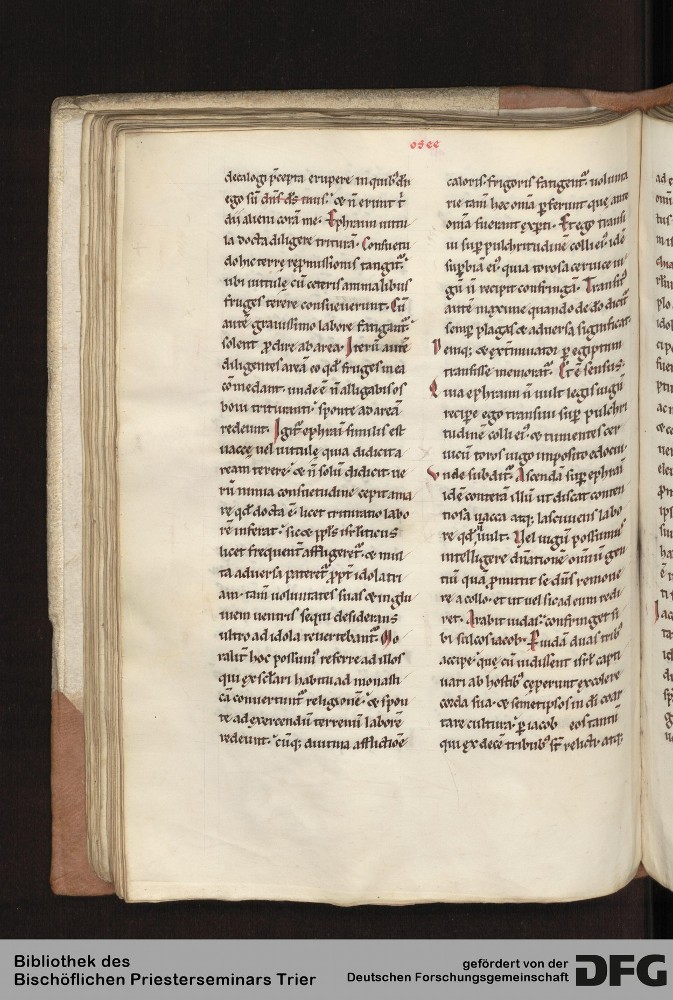 osee
decalogi p̄cepta erupere in quib; dr̄
ego sū dn̄s ds̄ tuus. & n̄ erunt t̄
dii alieni corā me. Ephraim uitu
la docta diligere triturā. Consuetu
do hic terrę repmissionis tangit᷑.
ubi uitulę cū ceteris animalibus
fruges terere consueuerunt. Cū
autē grauissimo labore fatigant᷑
solent ꝓdire ab area. Iterū autē
diligentes areā eo qd̄ fruges in ea
cōmedant. unde ē n̄ alligabis os
boui trituranti. sponte ad areā
redeunt. Igit᷑ ephraī similis est
uaccę uel uitulę quia didicit a
reā terere. & n̄ solū didicit ue
rū nimia consuetudine cepit ama
re qd̄ docta ē. licet trituratio labo
rē inferat. sic & ppl̄s isrl̄iticus
licet frequent̄ affligeret᷑. & mul
ta aduersa pateret᷑ ꝓpt̄ idolatri
am. tam̄ uoluntates suas & inglu
uiem uentris sequi desiderans
ultro ad idola reuertebant᷑. Mo
ralit̄ hoc possum᷒ referre ad illos
qui ex scl̄ari habitu ad monasti
cā conuertunt᷑ religionē. & spon
te ad exercendū terrenū laborē
redeunt. cūq; diuina afflictiōe
caloris. frigoris fatigent᷑. uolunta
rie tam̄ hec om̄ia p̱ferunt que ante
om̄ia fuerant exp̱ti. Et ego transi
ui sup̱ pulchritudinē colli ei᷒. idē
sup̱biā ei᷒. quia torosa ceruice iu
gū n̄ recipit confringā. Transit᷑
autē maxime quando de dō dicit᷑
semp̱ plagas & aduersa significat.
Deniq; & ext̄minator p̱ egiptum
transisse memorat᷑. Et ē sensus.
Quia ephraim n̄ uult legis iugū
recipe ego transiui sup̱ pulchri
tudinē colli ei᷒. & tumentes cer
uicū toros iugo imposito edocui.
Unde subdit᷑. Ascendā sup̱ ephraī
idē conterā illū ut discat conten
tiosa uacca atq; lasciuiens labo
re qd̄ n̄ uult. Uel iugū possumus
intelligere dn̄ationē om̄iū gen
tiū quā ꝓmittit se dn̄s remoue
re a collo. & ut uel sic ad eum redi
ret. Arabit iudas. confringet si
bi sulcos iacob. Ꝑ iudā duas trib᷒
accipe. que cū uidissent isrl̄ capti
uari ab hostib᷒ cęperunt excolere
corda sua. & semetipsos in dī exar
tare cultura. p̱ iacob eos tantū
qui ex decē tribub᷒ st̄ relicti. atq;
Bibliothek des
Bischöflichen Priesterseminars Trier
gefördert von der
Deutschen Forschungsgemeinschaft
DFG